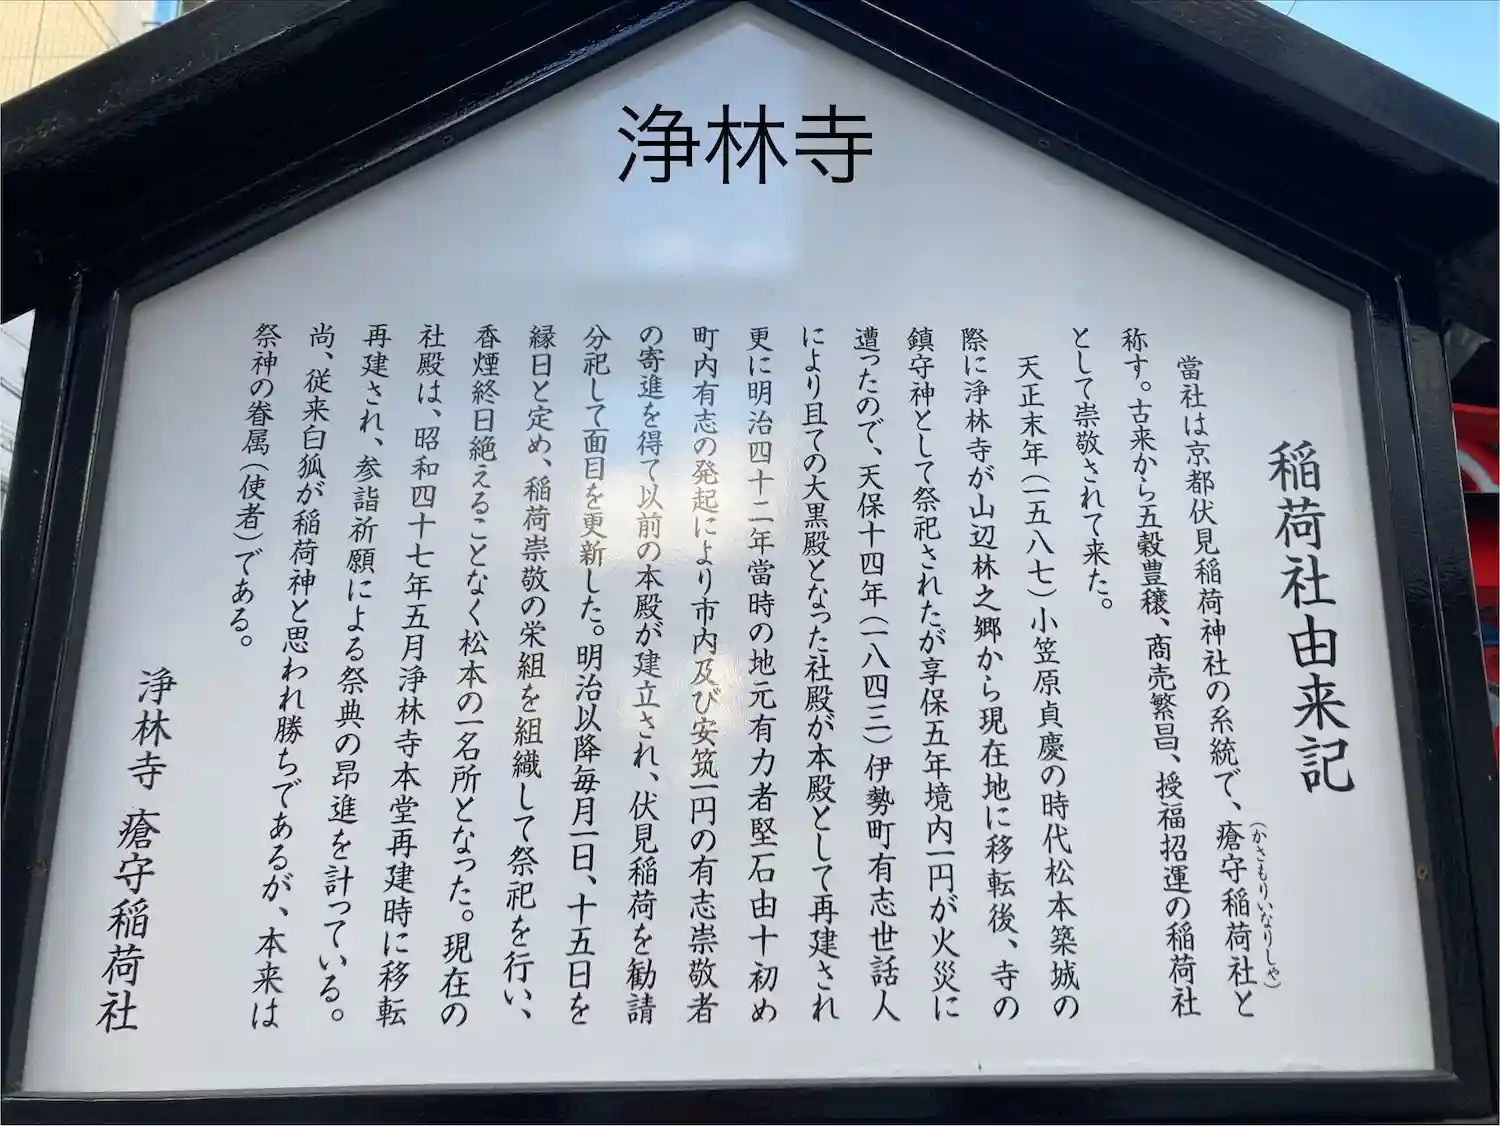 浄林寺
稲荷社由来記
當社は京都伏見稲荷神社の系統で、瘡守稲荷社と
(かさもりいなりしゃ)
称す。古来から五穀豊穣、商売繁昌、授福招運の稲荷社
として崇敬されて来た。
天正末年(一五八七)小笠原貞慶の時代松本築城の
際に浄林寺が山辺林之郷から現在地に移転後、寺の
鎮守神として祭祀されたが享保五年境内一円が火災に
遭ったので、天保十四年(一八四三)伊勢町有志世話人
により且ての大黒殿となった社殿が本殿として再建され
更に明治四十二年當時の地元有力者堅石由十初め
町内有志の発起により市内及び安筑一円の有志崇敬者
の寄進を得て以前の本殿が建立され、伏見稲荷を勧請
分祀して面目を更新した。明治以降毎月一日、十五日を
縁日と定め、稲荷崇敬の栄組を組織して祭祀を行い、
香煙終日絶えることなく松本の一名所となった。現在の
社殿は、昭和四十七年五月浄林寺本堂再建時に移転
再建され、参詣祈願による祭典の昂進を計っている。
尚、従来白狐が稲荷神と思われ勝ちであるが、本来は
祭神の眷属(使者)である。
浄林寺 瘡守稲荷社